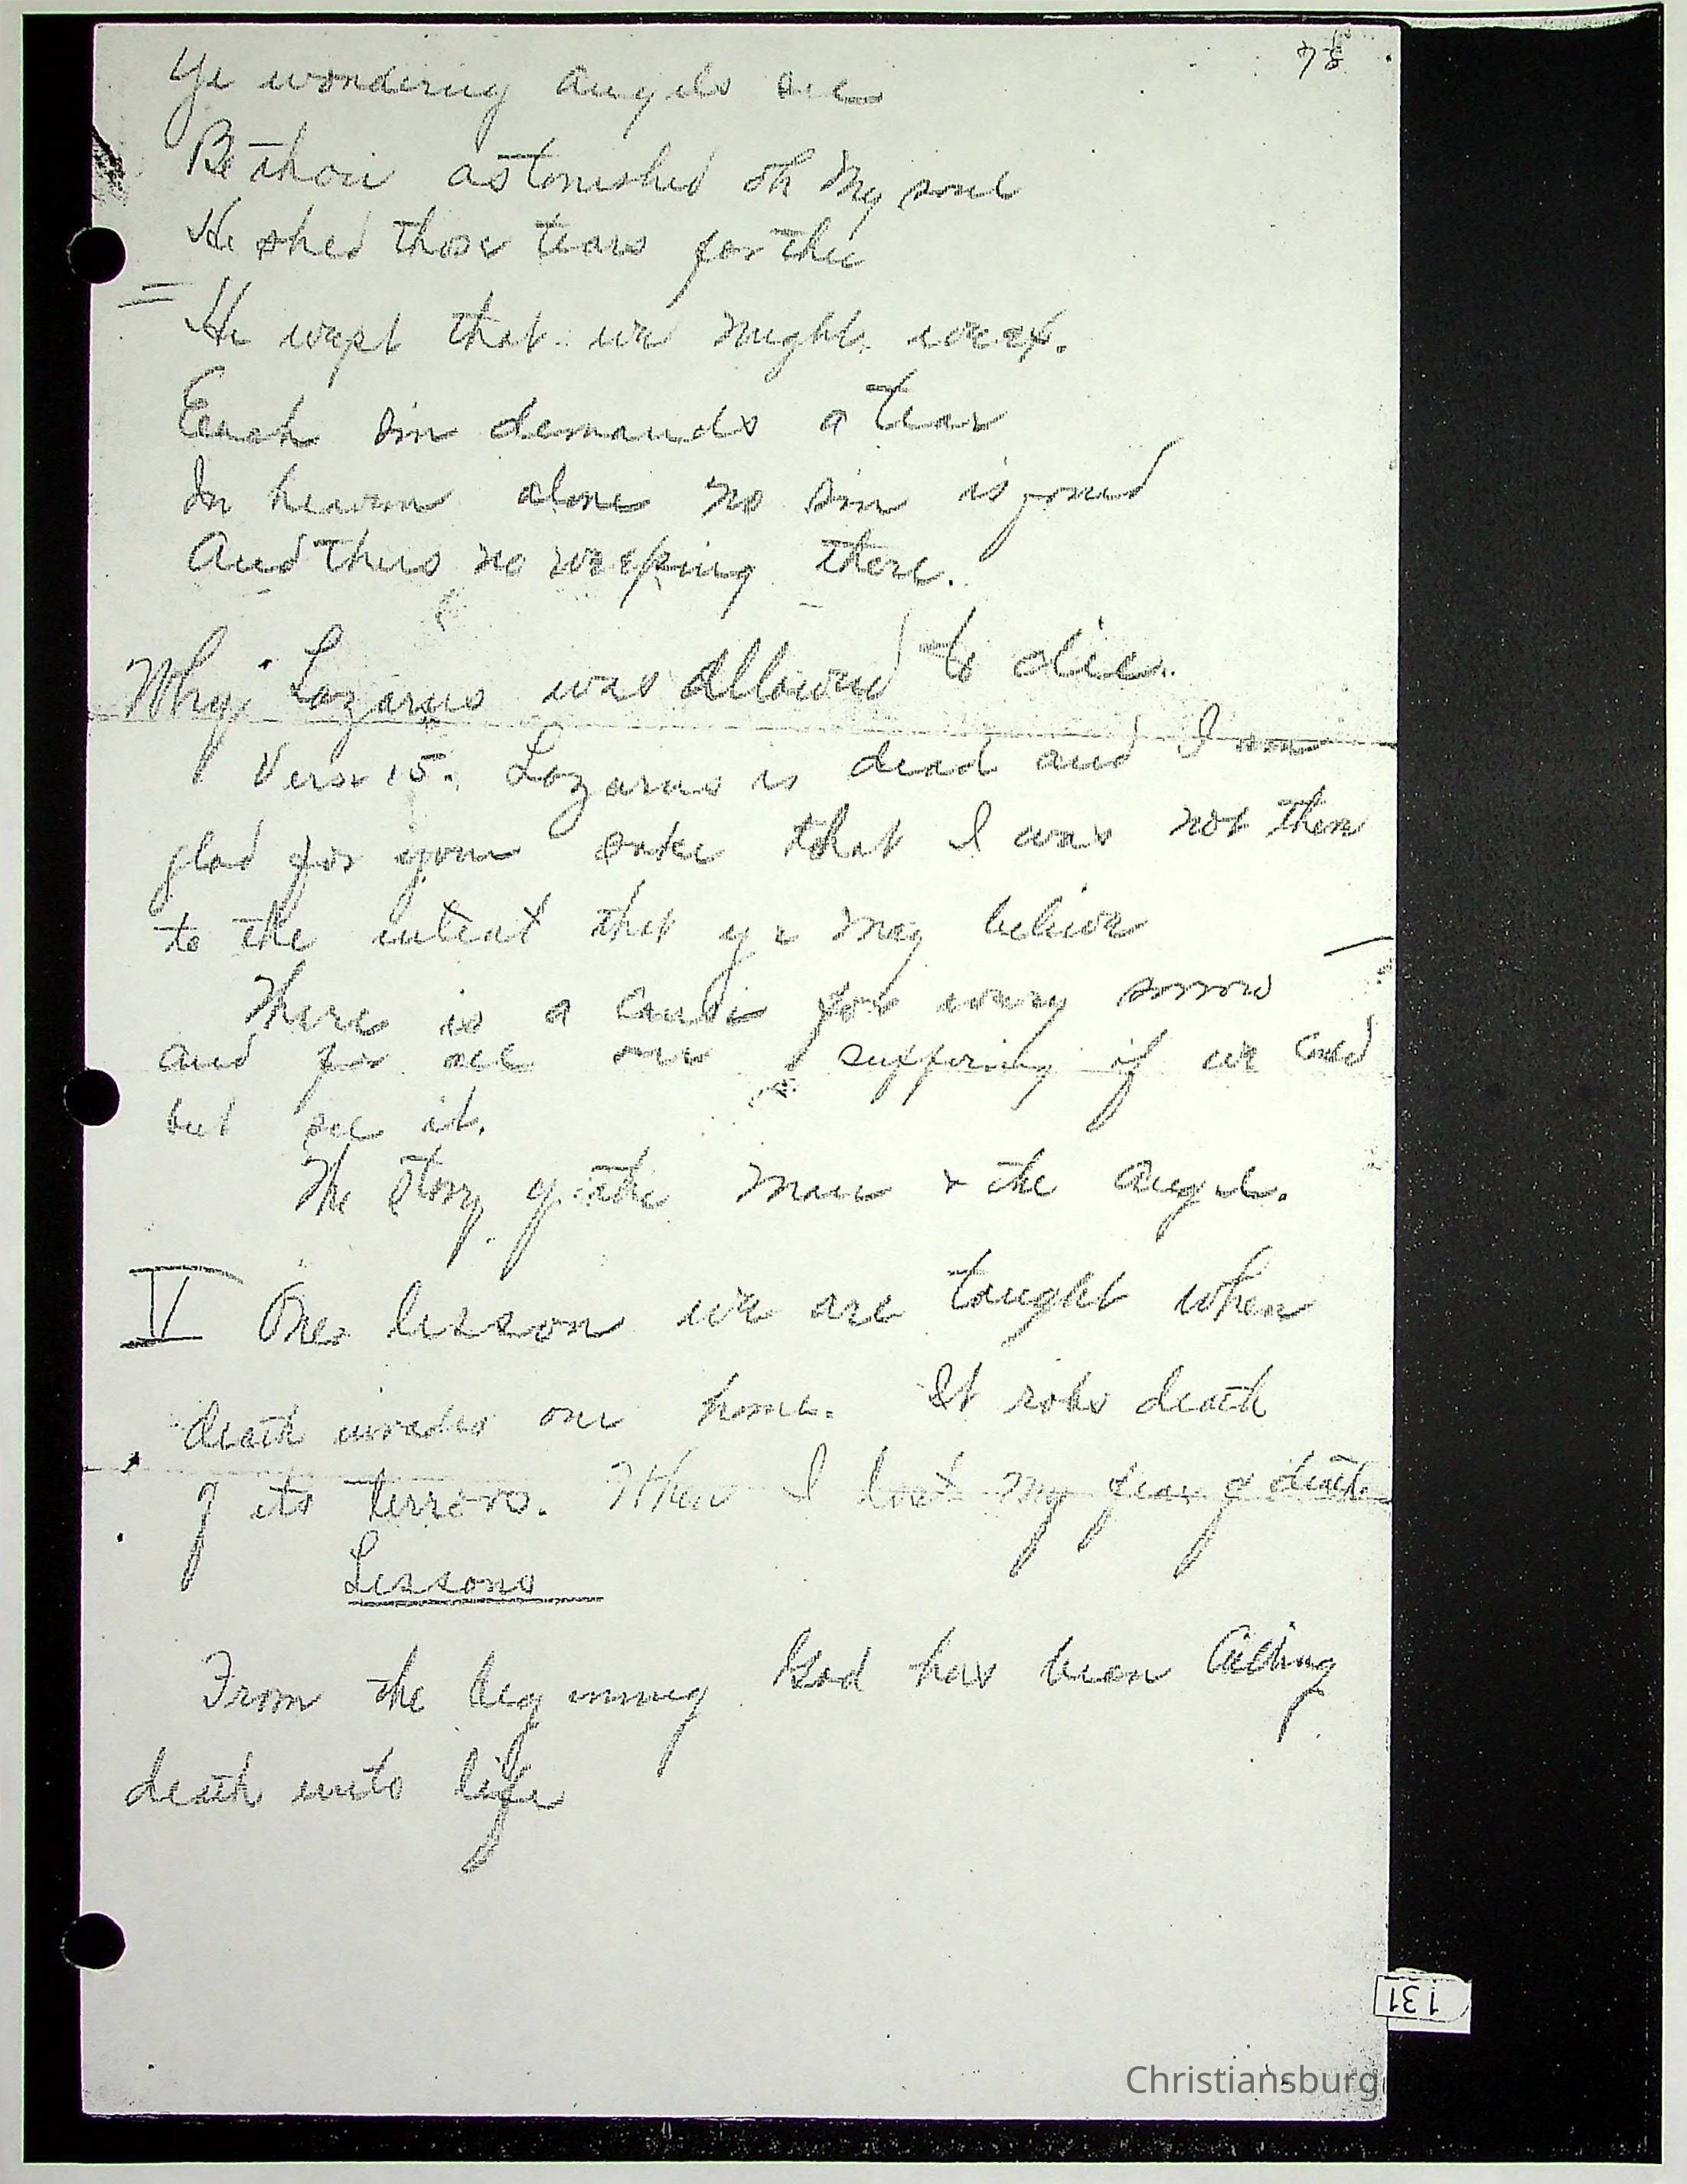 Ye wondering angels see
Be thou astonished oh my soul
He shed those tears for thee
= He wept that we might weep.
Each sin demands a tear
In heaven alone no sin is found
And thus no weeping there.
Why Lazarus was allowed to die.
Verse 15. Lazarus is dead and I am
glad for your sake that I was not then
to the intent that ye may believe
There is a cause for every sorrow
and for all our suffering if we could
but see it.
The Story of the man & the angel.
V One lesson we are taught when
death invades our home. It robs death
of its terrors. When I lost my fear of death
Lessons
From the beginning God has been calling
death unto life
131
Christiansburg